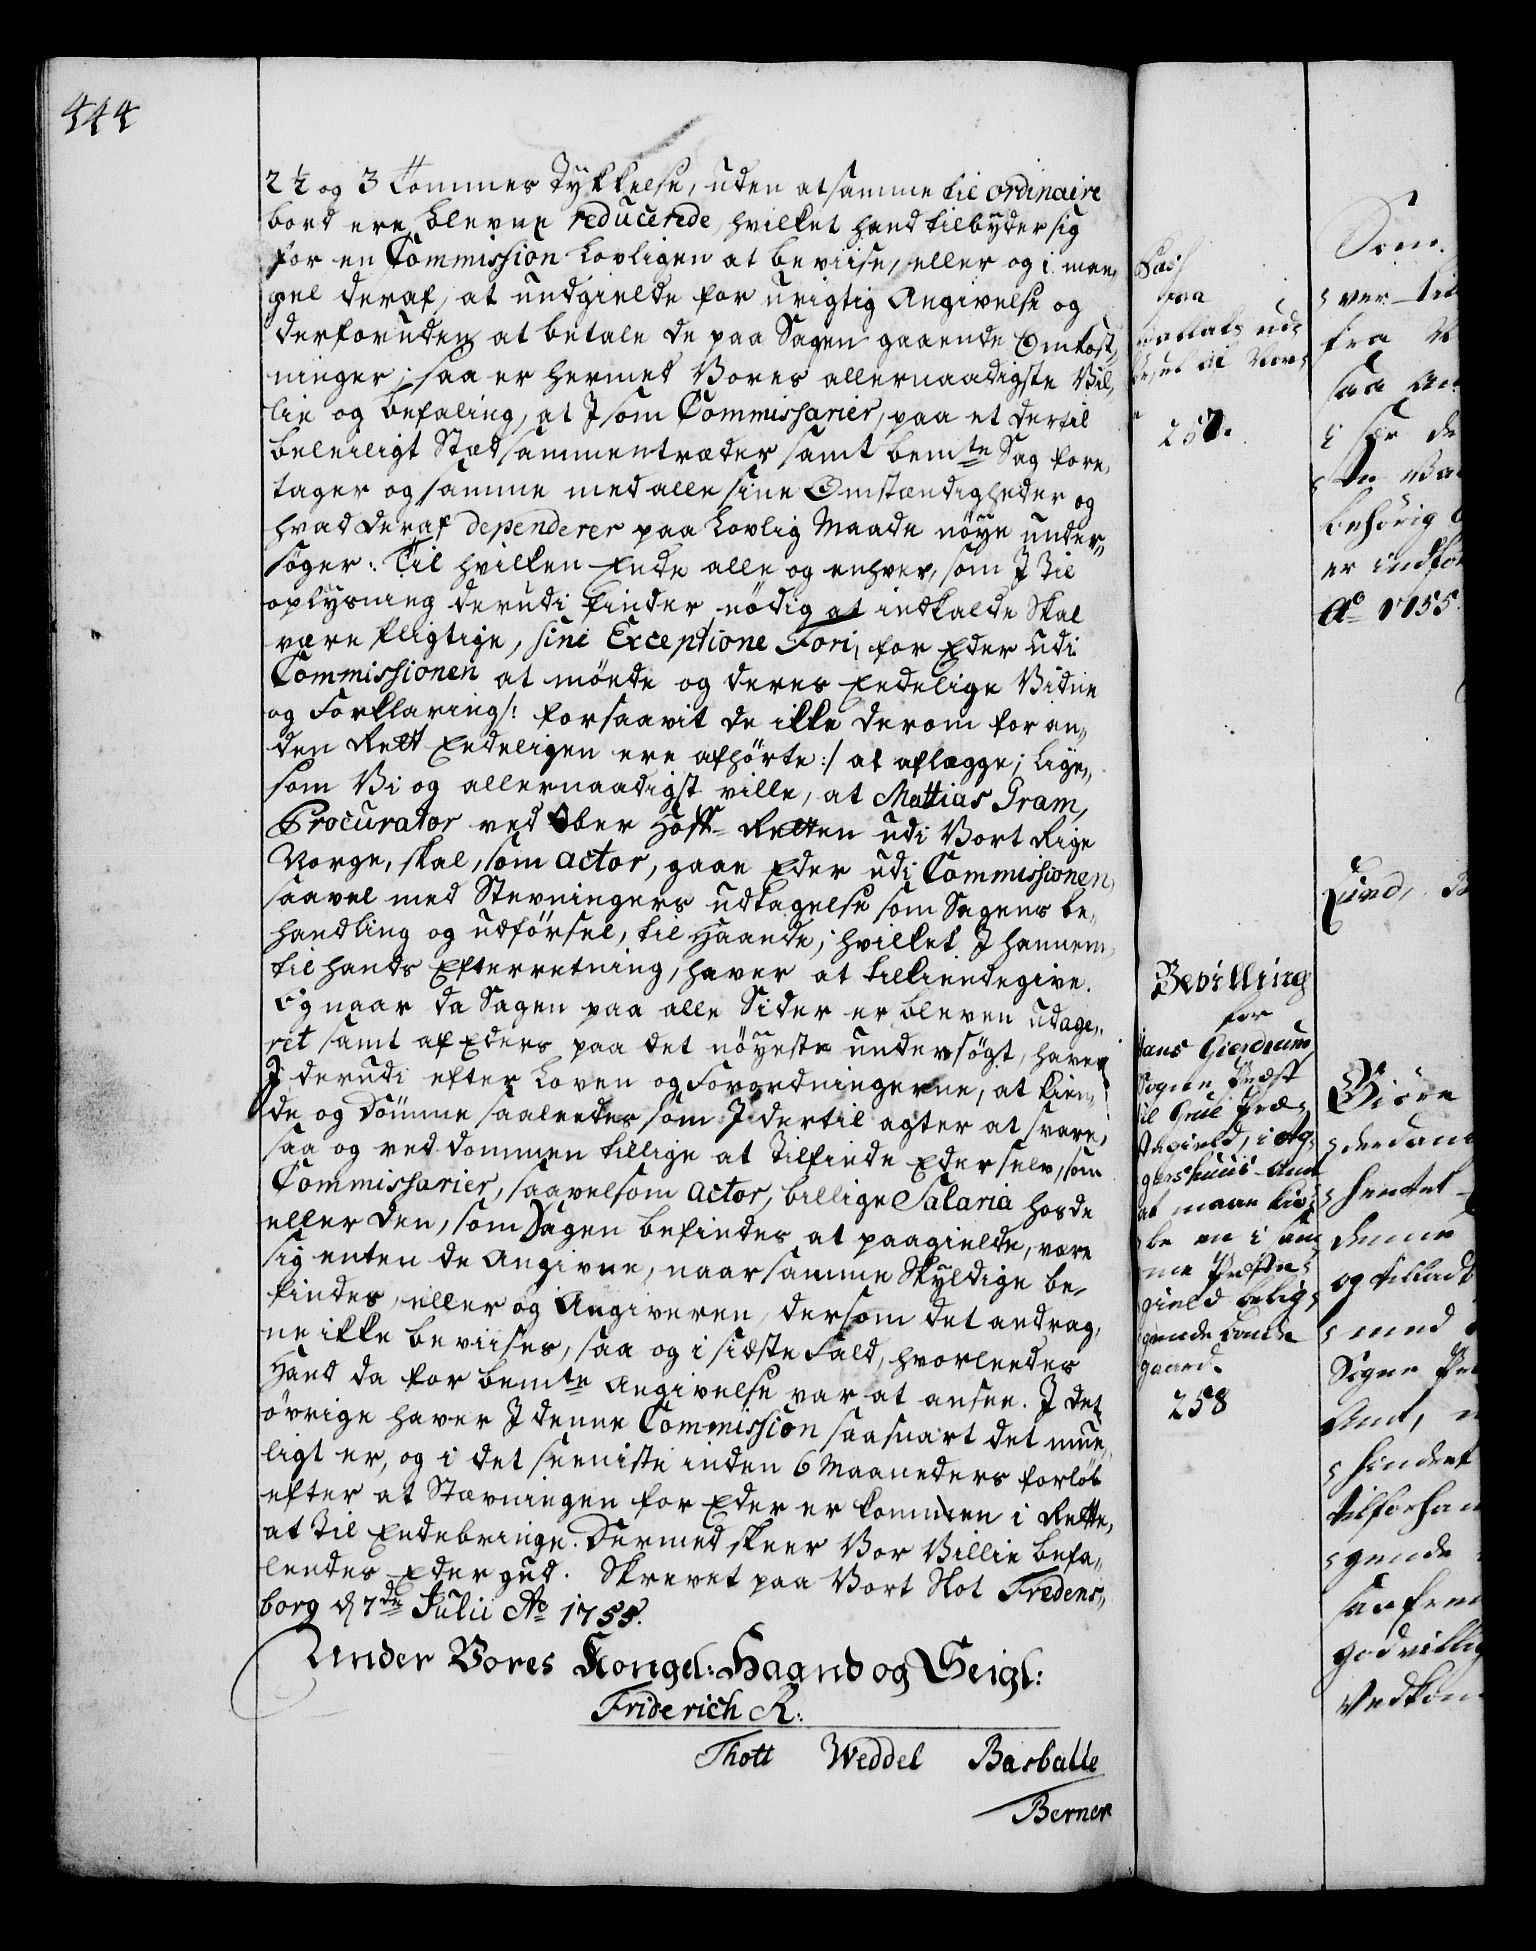 444
2½ og 3 Tommers Tykkelse, uden at samme til ordinaire
bord ere blevne reducerede, hvilket hand tilbyder sig
for en Commission Lovligen at beviise, eller og i man,,
gel deraf, at undgielde for urigtig Angivelse og
derforuden at betale de paa Sagen gaaende Omkost,,
ninger; saa er hermed Vores allernaadigste Vil,,
lie og befaling, at I som Commissarier, paa et dertil
beleiligt Stæd sammentræder samt bemte Sag fore,,
tager og samme med alle sine Omstændigheder og
hvad deraf dependerer paa Lovlig Maade nöye under,,
söger: Til hvilken Ende alle og enhver, som I til
oplysning derudi finder nödig at indkalde Skal
være pligtige, sine Exceptione Fori, for Eder udi
Commissionen at möede og deres Eedelige Vidne
og Forklaring /: forsaavit de ikke derom for an,,
den Rett Eedeligen ere afhörte :/ at aflægge; Lige,,
som Vi og allernaadigst ville, at Mattias Gram,
Procurator ved Ober Hoff-Retten udi Vort Rige
Norge, skal, som Actor, gaae Eder udi Commissionen,
saavel med Stevningers udtagelse som Sagens be,,
handling og udförsel, til Haande; hvilket I hannem,
til hands Efterretning, haver at tilkiendegive.
Og naar da Sagen paa alle Sider er bleven udage,,
ret samt af Eders paa det nöyeste undersögt, haver
I derudi efter Loven og Forordningerne, at kien,,
de og Dömme saaledes som I dertil agter at svare,
saa og ved dommen tillige at Tilfinde Eder selv, som
Commissarier, saavelsom Actor, billige Salaria hos de
eller den, som Sagen befindes at paagielde, være
sig enten de Angivne, naar samme Skyldige be,,
findes, eller og Angiveren, dersom det andrag,,
ne ikke beviises, saa og i sidste Fald, hvorledes
Hand da for bemte Angivelse var at ansee. I det
övrige haver I denne Commission saasnart det mue,,
ligt er, og i det seeniste inden 6 Maaneders forlöb
efter at Stævningen for Eder er kommen i Rette,
at til Endebringe. Dermed skeer Vor Villie befa,,
lendes Eder gud. Skrevet paa Vort Slot Fredens,,
borg d 7de Julii Ao 1755.
Under Vores Kongel: Haand og Seigl:
Friderich R:
Thott Weddel Basballe
Berner
Pass
paa
257.
Bevilling
for
Hans Gierdrum
Sogne Præst
til Grue Præ,,
stegield, i Ag,,
gershuus Amt
at maae kiö,,
be en i sam,,
me Præste,,
gield belig,,
gende bonde
gaard.
258
Som
ver til
fra
saa
i
behörig
er indför
Ao 1755.
Lund,
Giöre
derdan
hentet
denne
og tilladt
med
Sogne Pr
Amt,
hindret
tilforhan
gende
saafrem
godvillig
Vedkom